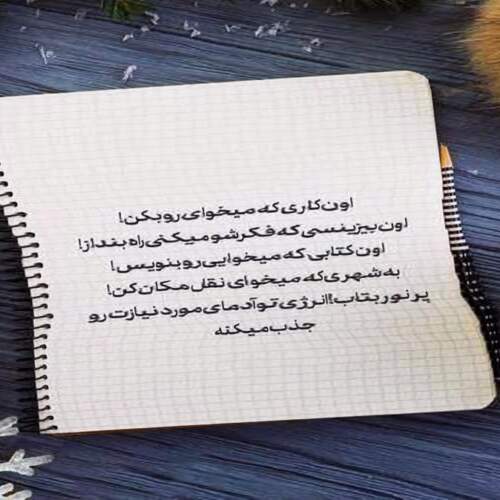 اون کاری که میخوای رو بکن!
اون بیزینسی که فکرشو میکنی راه بنداز!
اون کتابی که میخوایی رو بنویس!
به شهری که میخوای نقل مکان کن!
پر نور بتاب!انرژی تو آدمای مورد نیازت رو
جذب میکنه